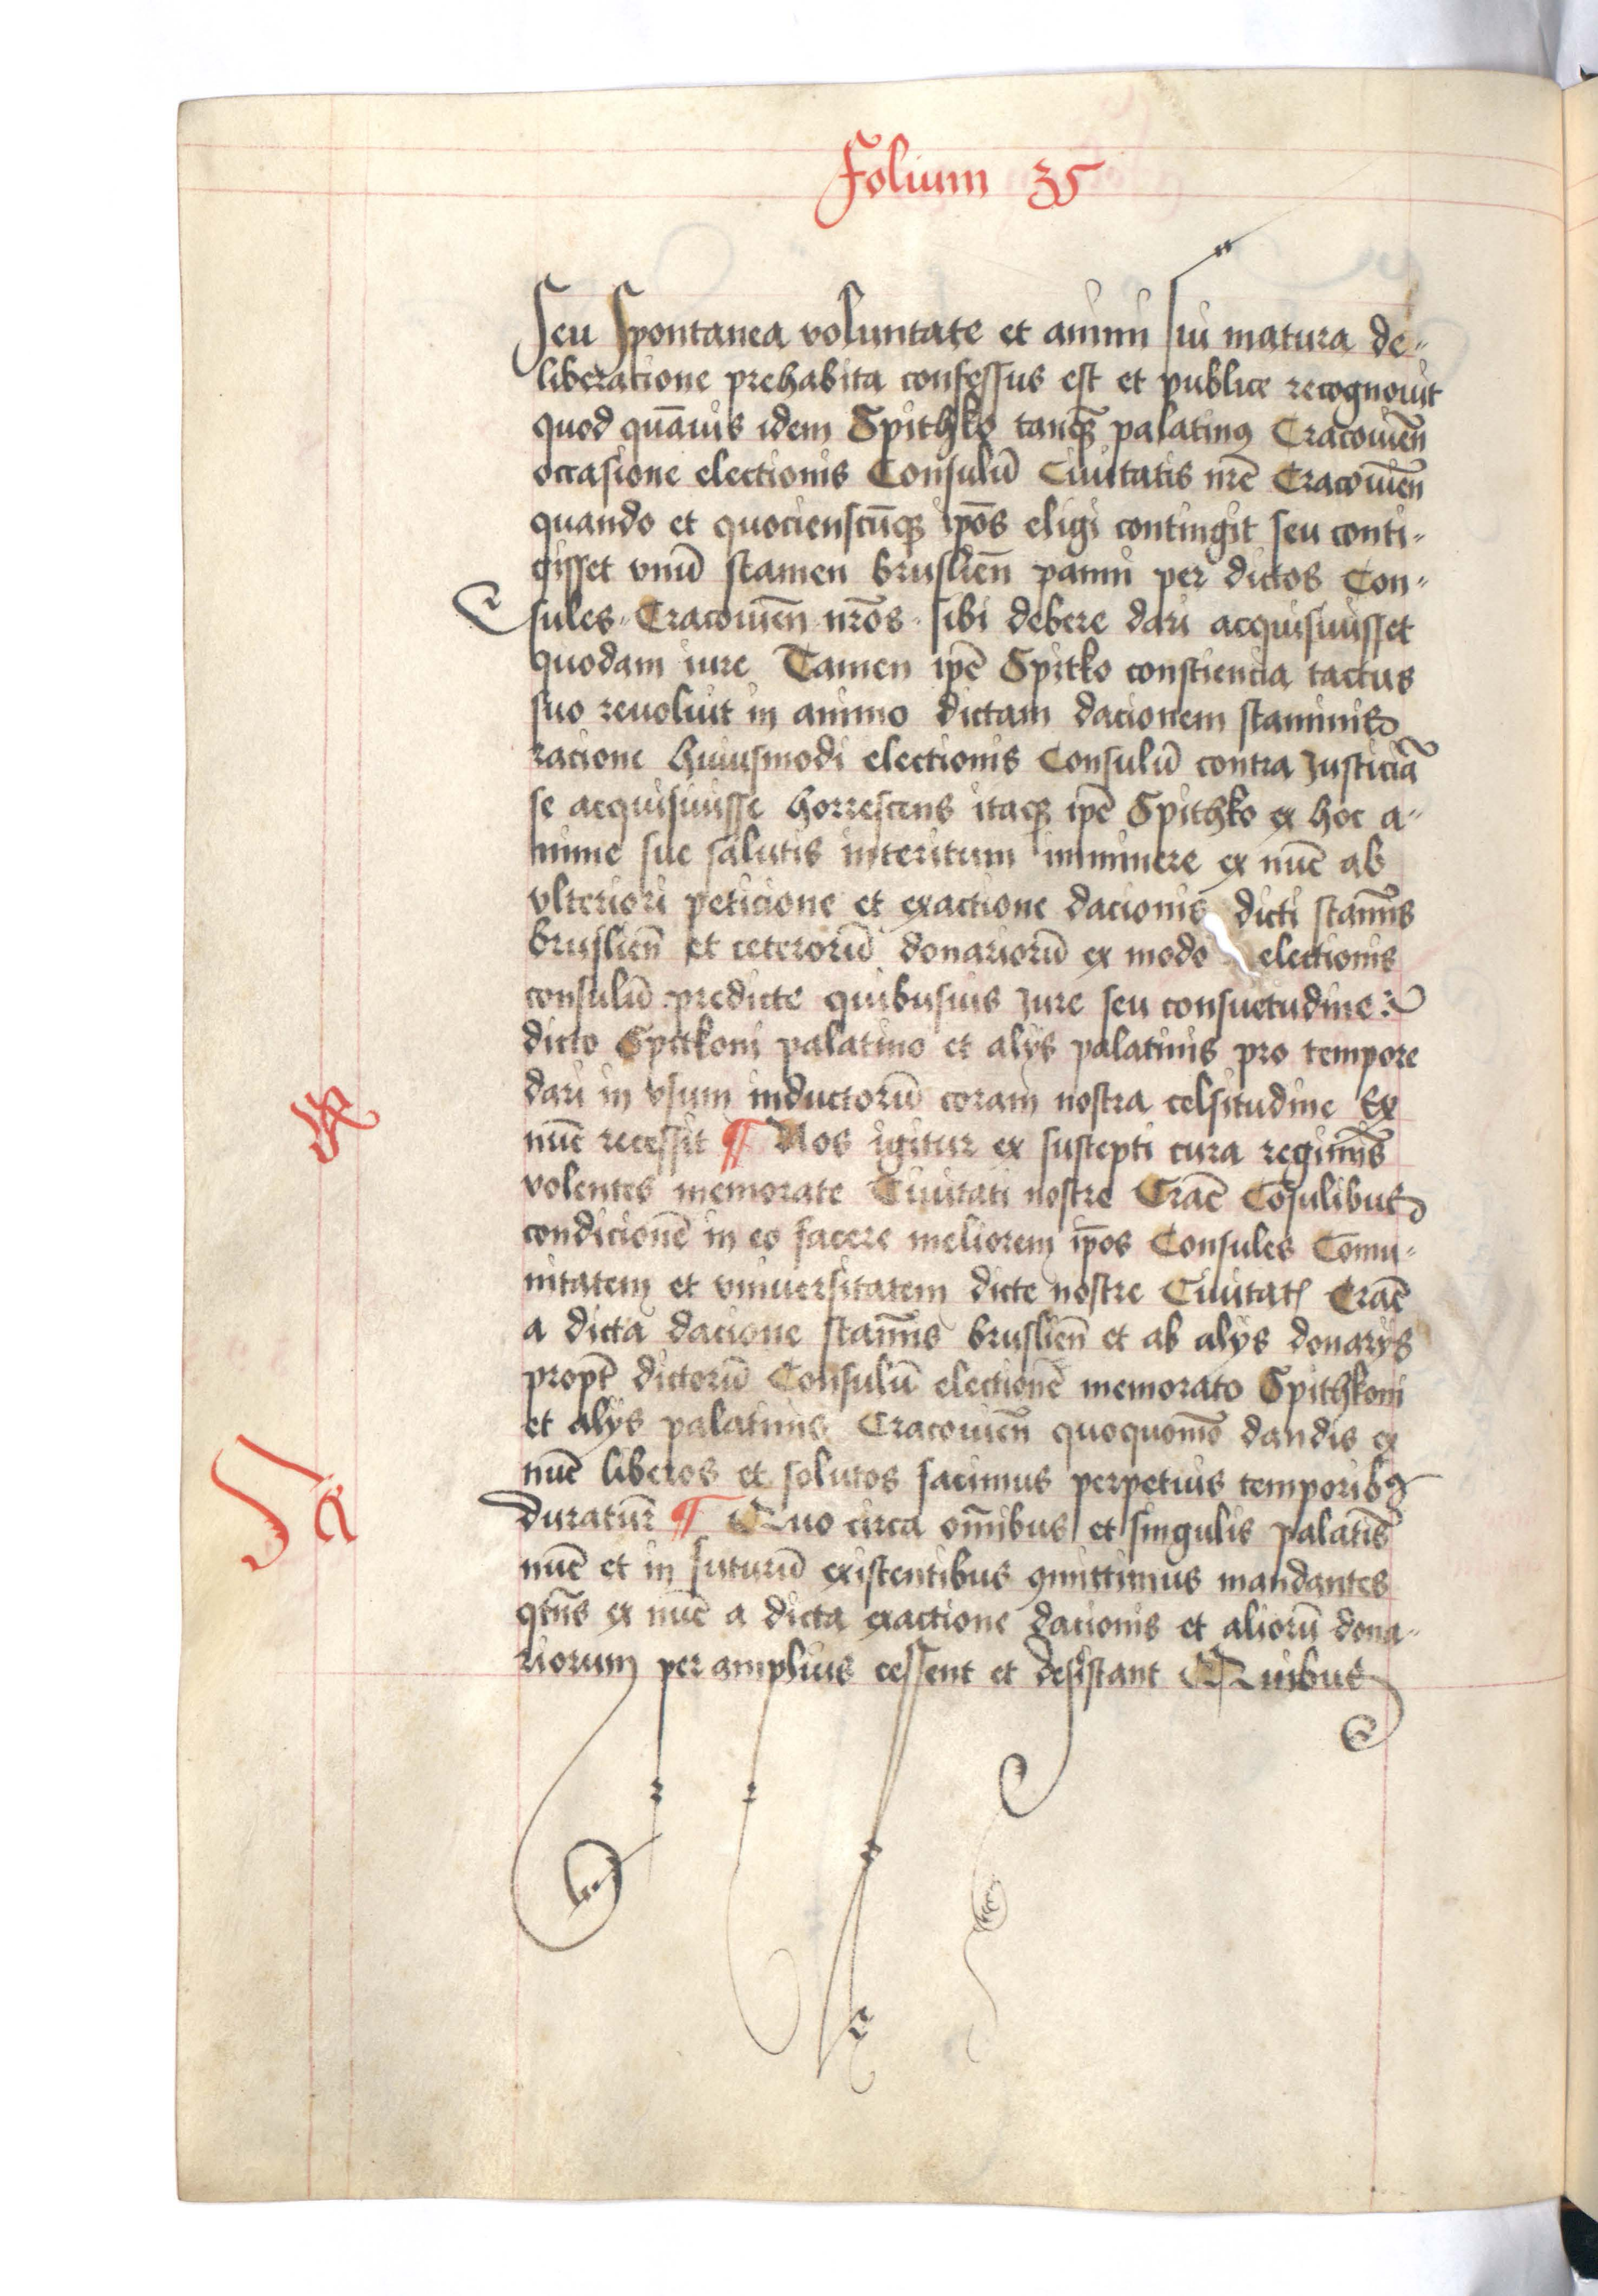 Folium 35
Seu Spontanea voluntate et animi sui matura de-
liberatione prehabita confessus est et publice recognouit
quod qua̅uis idem Spithko tanqꝫ palatinꝰ Cracouien̅
occasione electionis Consulu̅ Ciuitatis nr̅e Cracouien̅
quando et quocienscu̅qꝫ ip̅os eligi contingit seu conti-
gisset vnu̅ stamen bruslien̅ panni per dictos Con-
sules Cracouien̅ nr̅os sibi debere dari acquisiuisset
quodam iure Tamen ip̅e Spitko consciencia tactus
suo reuoluit in animo dictam dacionem staminis
racione huiusmodi electionis Consulu̅ contra Justicia̅
se acquisiuisse horrescens itaqꝫ ip̅e Spithko ex hoc a-
nime sue salutis interitum imminere ex nu̅c ab
vlteriori peticione et exactione dacionis dicti stami̅s
bruslien̅ et ceteroru̅ donarioru̅ ex modo electionis
consulu̅ predicte quibusuis Jure seu consuetudine
dicto Spitkoni palatino et alys palatinis pro tempore
dari in vsum inductoru̅ coram nostra celsitudine Ex
nu̅c recessit ¶ Nos igitur ex suscepti cura regimi̅s
volentes memorate Ciuitati nostre Crac̅ Co̅sulibus
condicione̅ in eo facere meliorem ip̅os Consules Com̅u-
nitatem et vniuersitatem dicte nostre Ciuitatꝭ Crac̅
a dicta dacione stami̅s bruslien̅ et ab alys donarys
propt̅ dictoru̅ Consulu̅ electione̅ memorato Spithkoni
et alys palatinis Cracouien̅ quoquomo̅ dandis ex
nu̅c liberos et solutos facimus perpetuis temporibꝰ
duratur̅ ¶ Quo circa om̅ibus et singulis palati̅s
nu̅c et in futuru̅ existentibus ꝯmittimus mandantes
qtn̅s ex nu̅c a dicta exactione dacionis et alioru̅ dona-
riorum per amplius cessent et desistant Quibus